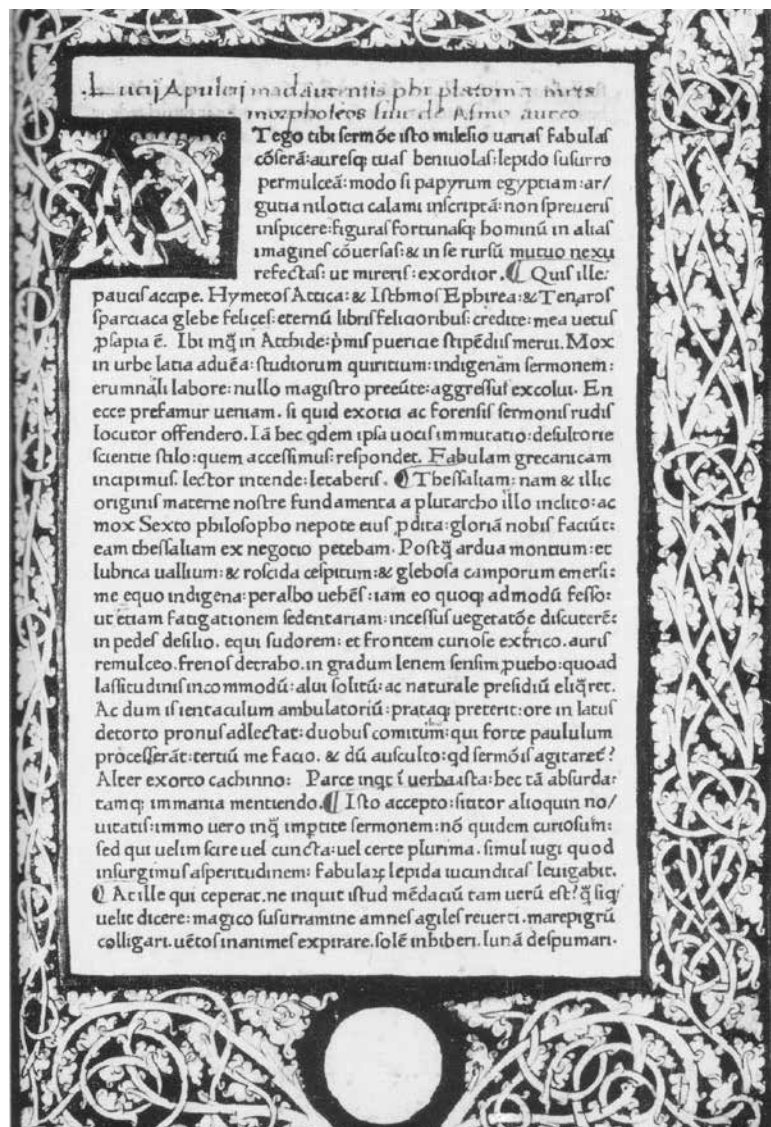 .Lucij Apuleij madaurentis phi platoni metamorphoseos siue de Asino aureo
Tego tibi sermōe isto milesio uarias fabulas
cōserā:auresq; tuas beniuolas:lepido susurro
permulceā:modo si papyrum egyptiam:ar/
gutia nilotici calami inscriptā:non spreueris
inspicere:figuras fortunasq; hominū in alias
imagines cōuersas:& in se rursū mutuo nexu
refectas: ut mireris: exordior. ¶ Quis ille:
paucis accipe. Hymetos Attica: & Isthmos Ephirea: & Tenaros
sparciaca glebe felices: eternū libris felicioribus: credite: mea uetus
ꝓsapia ē. Ibi inq̄ in Atthide: p̄mis puericie stipēdiis merui. Mox
in urbe latia aduēa: studiorum quiritium: indigenam sermonem:
erumnali labore: nullo magistro preeūte: aggressus excolui. En
ecce prefamur ueniam. si quid exotici ac forensis sermonis rudis
locutor offendero. Iā hec qdem ipsa uocis immutatio: desultorie
scientie stilo: quem accessimus: respondet. Fabulam grecanicam
incipimus. lector intende: letaberis. ¶ Thessaliam: nam & illic
originis materne nostre fundamenta a plutarcho illo inclito: ac
mox Sexto philosopho nepote eius ꝓdita: gloriā nobis faciūt:
eam thessaliam ex negotio petebam. Postq̄ ardua montium: et
lubrica uallium: & roscida cespitum: & glebosa camporum emersi:
me equo indigena: peralbo uehēs: iam eo quoq; admodū fesso:
ut etiam fatigationem sedentariam: incessus uegetatōe discuterē:
in pedes desilio. equi sudorem: et frontem curiose exfrico. auris
remulceo. frenos detraho. in gradum lenem sensim ꝓueho: quoad
lassitudinis incommodū: alui solitū: ac naturale presidiū eliq̄ret.
Ac dum is ientaculum ambulatoriū: prataq; preterit: ore in latus
detorto pronus adfectat: duobus comitum: qui forte paululum
processerāt: tertiū me facio. & dū ausculto: qd sermōis agitaret?
Alter exorto cachinno: Parce inqt ī uerba ista: hec tā absurda:
tamq; immania mentiendo. ¶ Isto accepto: sititor alioquin no/
uitatis: immo uero inq̄ imptite sermonem: nō quidem curiosum:
sed qui uelim scire uel cuncta: uel certe plurima. simul iugi quod
insurgimus asperitudinem: fabulaꝝ lepida iucunditas leuigabit.
¶ At ille qui ceperat. ne inquit istud mēdaciū tam uerū est? q̄ siq/
uelit dicere: magico susurramine amnes agiles reuerti. mare pigrū
colligari. uētos inanimes expirare. solē inhiberi. lunā despumari.